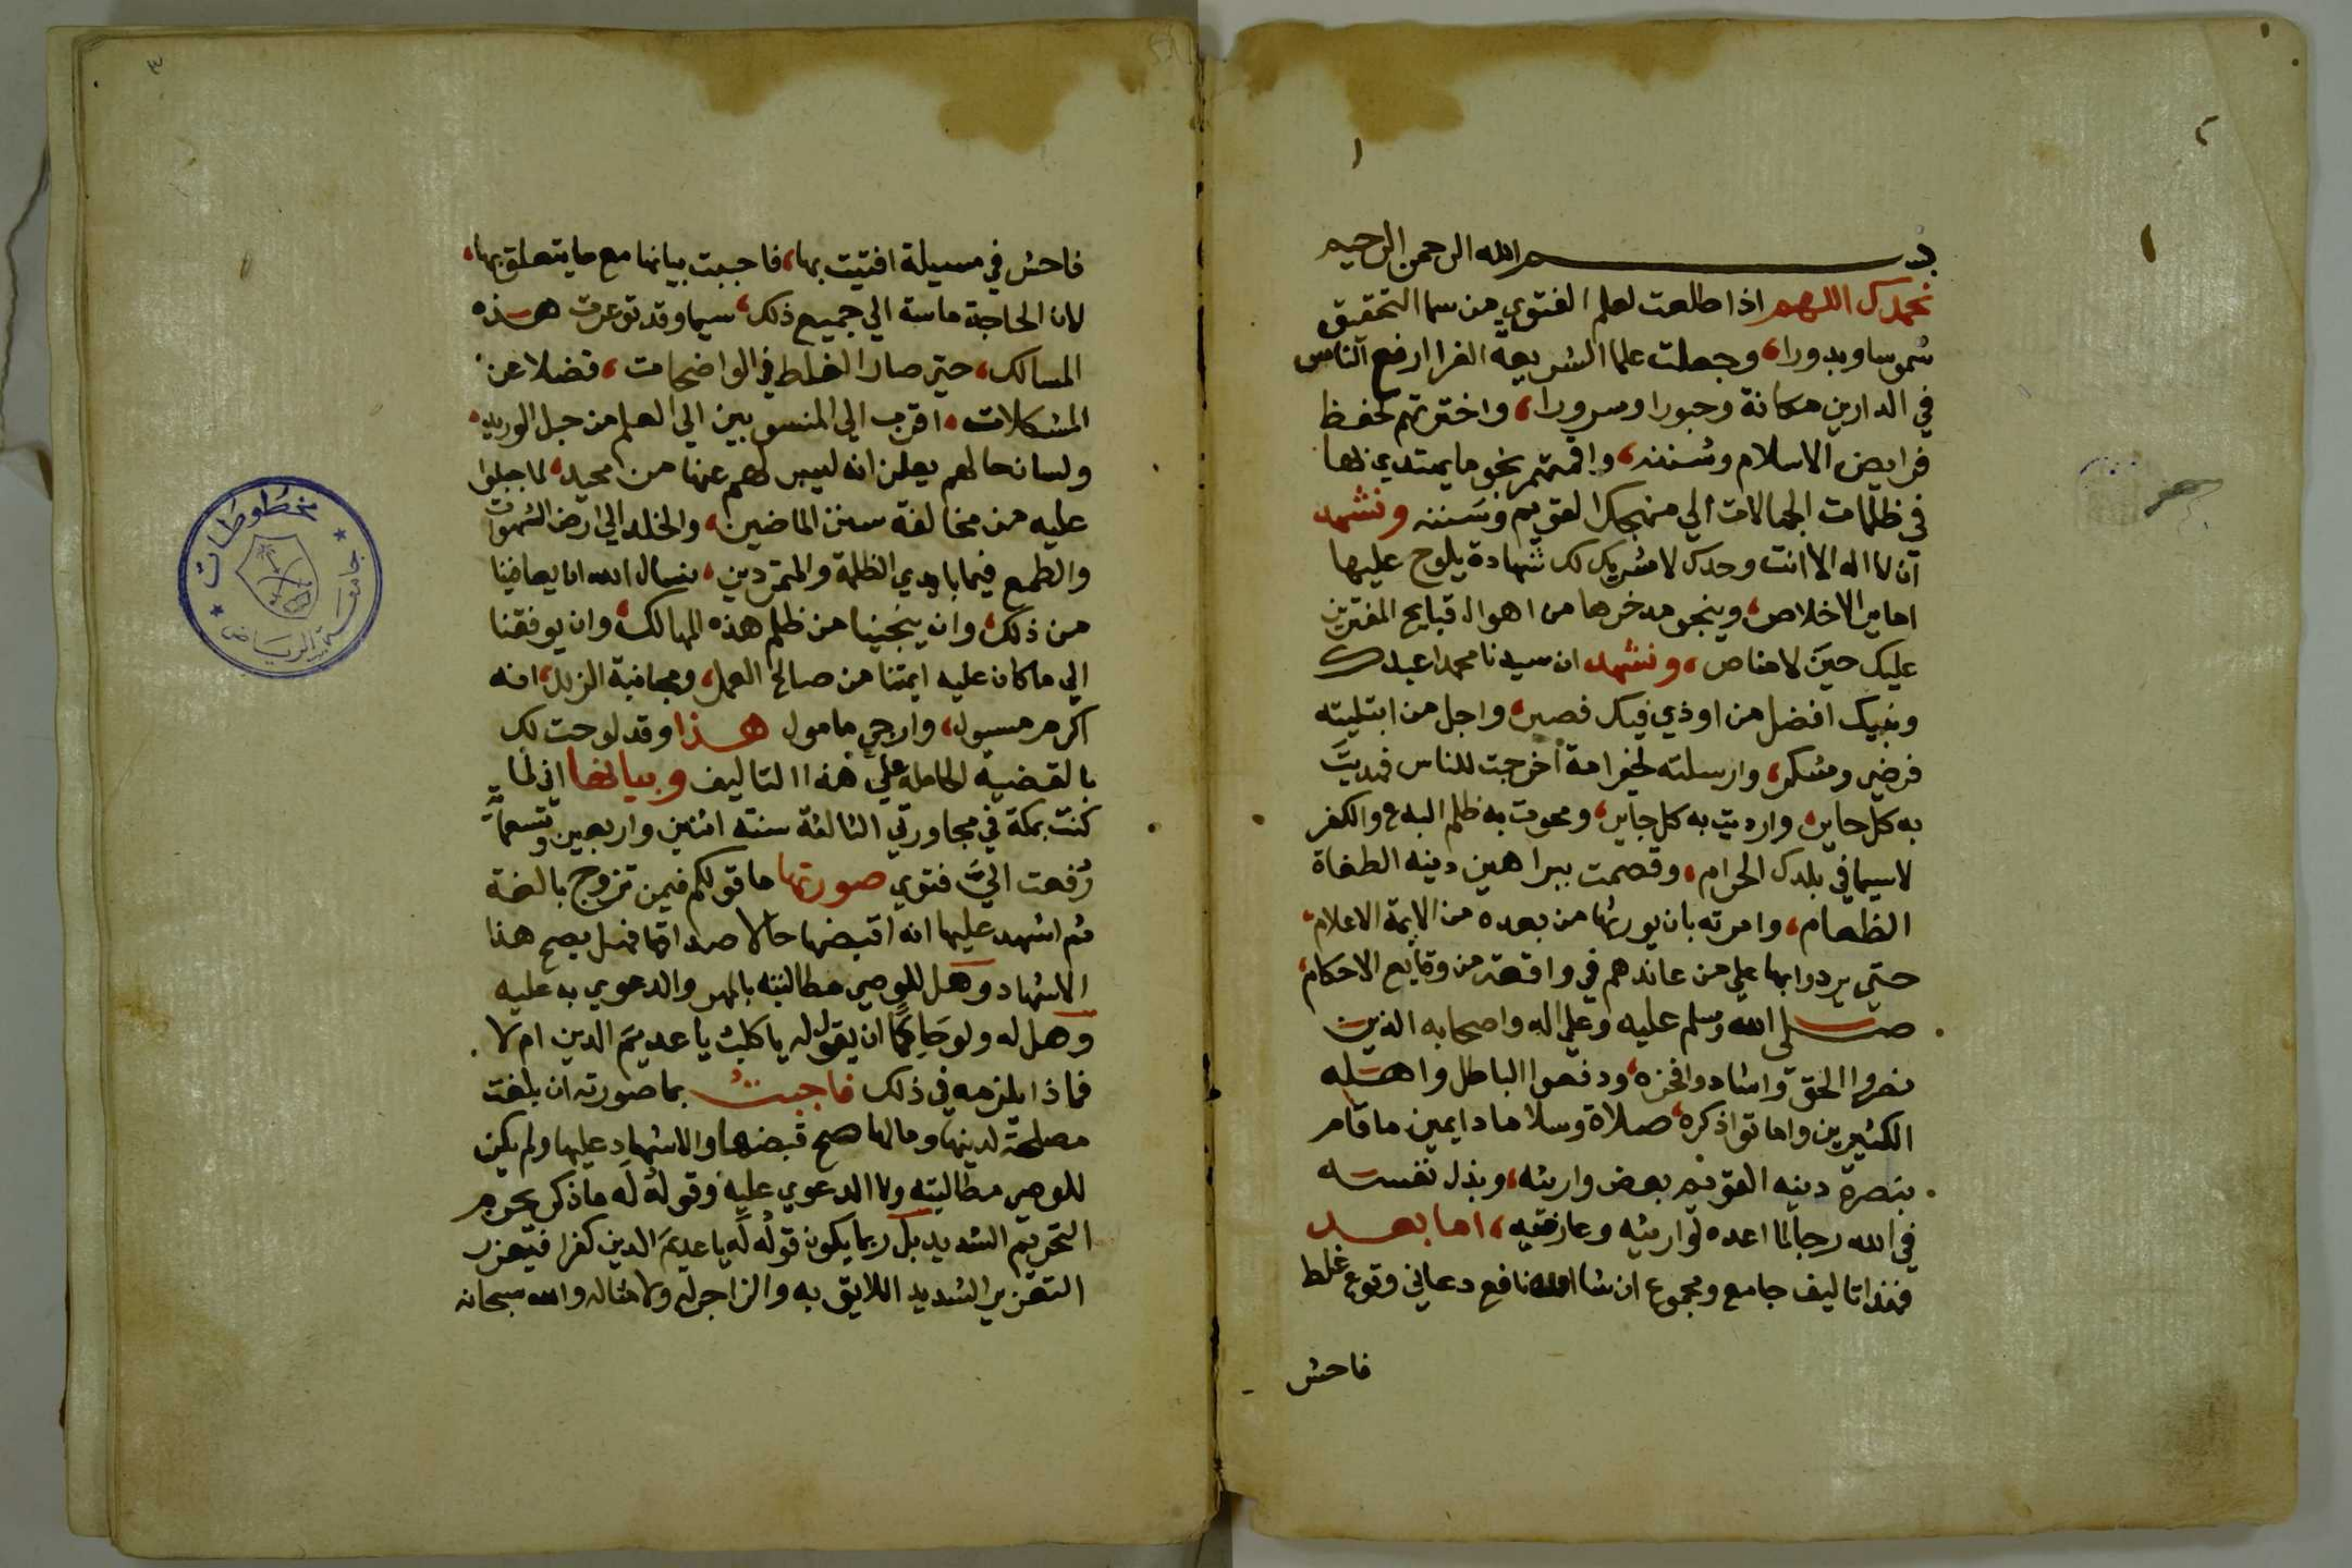 بسم الله الرحمن الرحيم
نحمدك اللهم اذا طلعت لعلم الفتوي من سما التحقيق
شموسا وبدورا، وجعلت علما الشريعة الغرا ارفع الناس
في الدارين مكانة وحبورا وسرورا، واخترتهم لحفظ
فرايض الاسلام وسننه، واقمتهم نجوما يهتدي بها
في ظلمات الجهالات الي منهجك القويم وسننه ونشهد
ان لا اله الا انت وحدك لا شريك لك شهادة يلوح عليها
الاخلاص، وينجو مدخرها من اهوال قبايح المفترين
عليك حين لا مناص، ونشهد ان سيدنا محمدا عبدك
ونبيك افضل من اوذي فيك فصبر، واجل من ابتليته
فرضي وشكر، وارسلته لخير امة اخرجت للناس فهديت
به كل حاير، وارديت به كل جاير، ومحوت به ظلم البدع والكفر
لاسيما في بلدك الحرام، وقصمت ببراهين دينه الطغاة
الطغام، وامرته بان يورثها من بعده من الايمة الاعلام،
حتي يردوا بها علي من عاندهم في واقعة من وقايع الاحكام،
صلى الله وسلم عليه وعلي اله واصحابه الذين
نصروا الحق واشادوا فخره، ودفعوا الباطل واهله
الكثيرين واماتوا ذكره، صلاة وسلاما دايمين ما قام
بنصرة دينه القويم بعض وارثيه، وبذل نفسه
في الله رجا لما اعده لوارثيه وعارفيه، اما بعد
فهذا تاليف جامع ومجموع ان شا الله نافع دعاني وقوع غلط
فاحش
٣
فاحش في مسيلة افتيت بها، فاجبت ببيانها مع ما يتعلق بها،
لان الحاجة ماسة الي جميع ذلك، سيما وقد توعرت هذه
المسالك، حتي صار الغلط في الواضحات، فضلا عن
المشكلات، اقرب الي المنسوبين الي العلم من حبل الوريد،
ولسان حالهم يعلن انه ليس لهم عنها من محيد، لما جبلوا
عليه من مخالفة سنن الماضين، والخلد الي ارض الشهوات
والطمع فيما بايدي الظلمة والمتمردين، نسال الله ان يعافينا
من ذلك، وان ينجينا من ظلم هذه المهالك، وان يوفقنا
الي ما كان عليه ايمتنا من صالح العمل، ومجانبة الزلل، انه
اكرم مسيول، وارجي مامول هذا وقد لوحت لك
بالقضية الحاملة علي هذا التاليف وبيانها اني لما
كنت بمكة في مجاورتي الثالثة سنته اثنين واربعين وتسعماية
رفعت الي فتوي صورتها ما قولكم فيمن تزوج بالغة
ثم اشهد عليها انه اقبضها حالا صداقها فهل يصح هذا
الاشهاد وهل للوصي مطالبته بالمهر والدعوي به عليه
وهل له ولو حاكما ان يقول له يا كلب يا عديم الدين ام لا
فماذا يلزمه في ذلك فاجبت بما صورته ان بلغت
مصلحة لدينها ومالها صح قبضها والاشهاد عليها ولم يكن
للوصي مطالبته ولا الدعوي عليه وقوله له ما ذكر محرم
التحريم الشديد بل ربما يكون قوله له يا عديم الدين كفرا فيعزر
التعزير الشديد اللايق به والزاجر له ولامثاله والله سبحانه
مخطوطات
جامعة الرياض